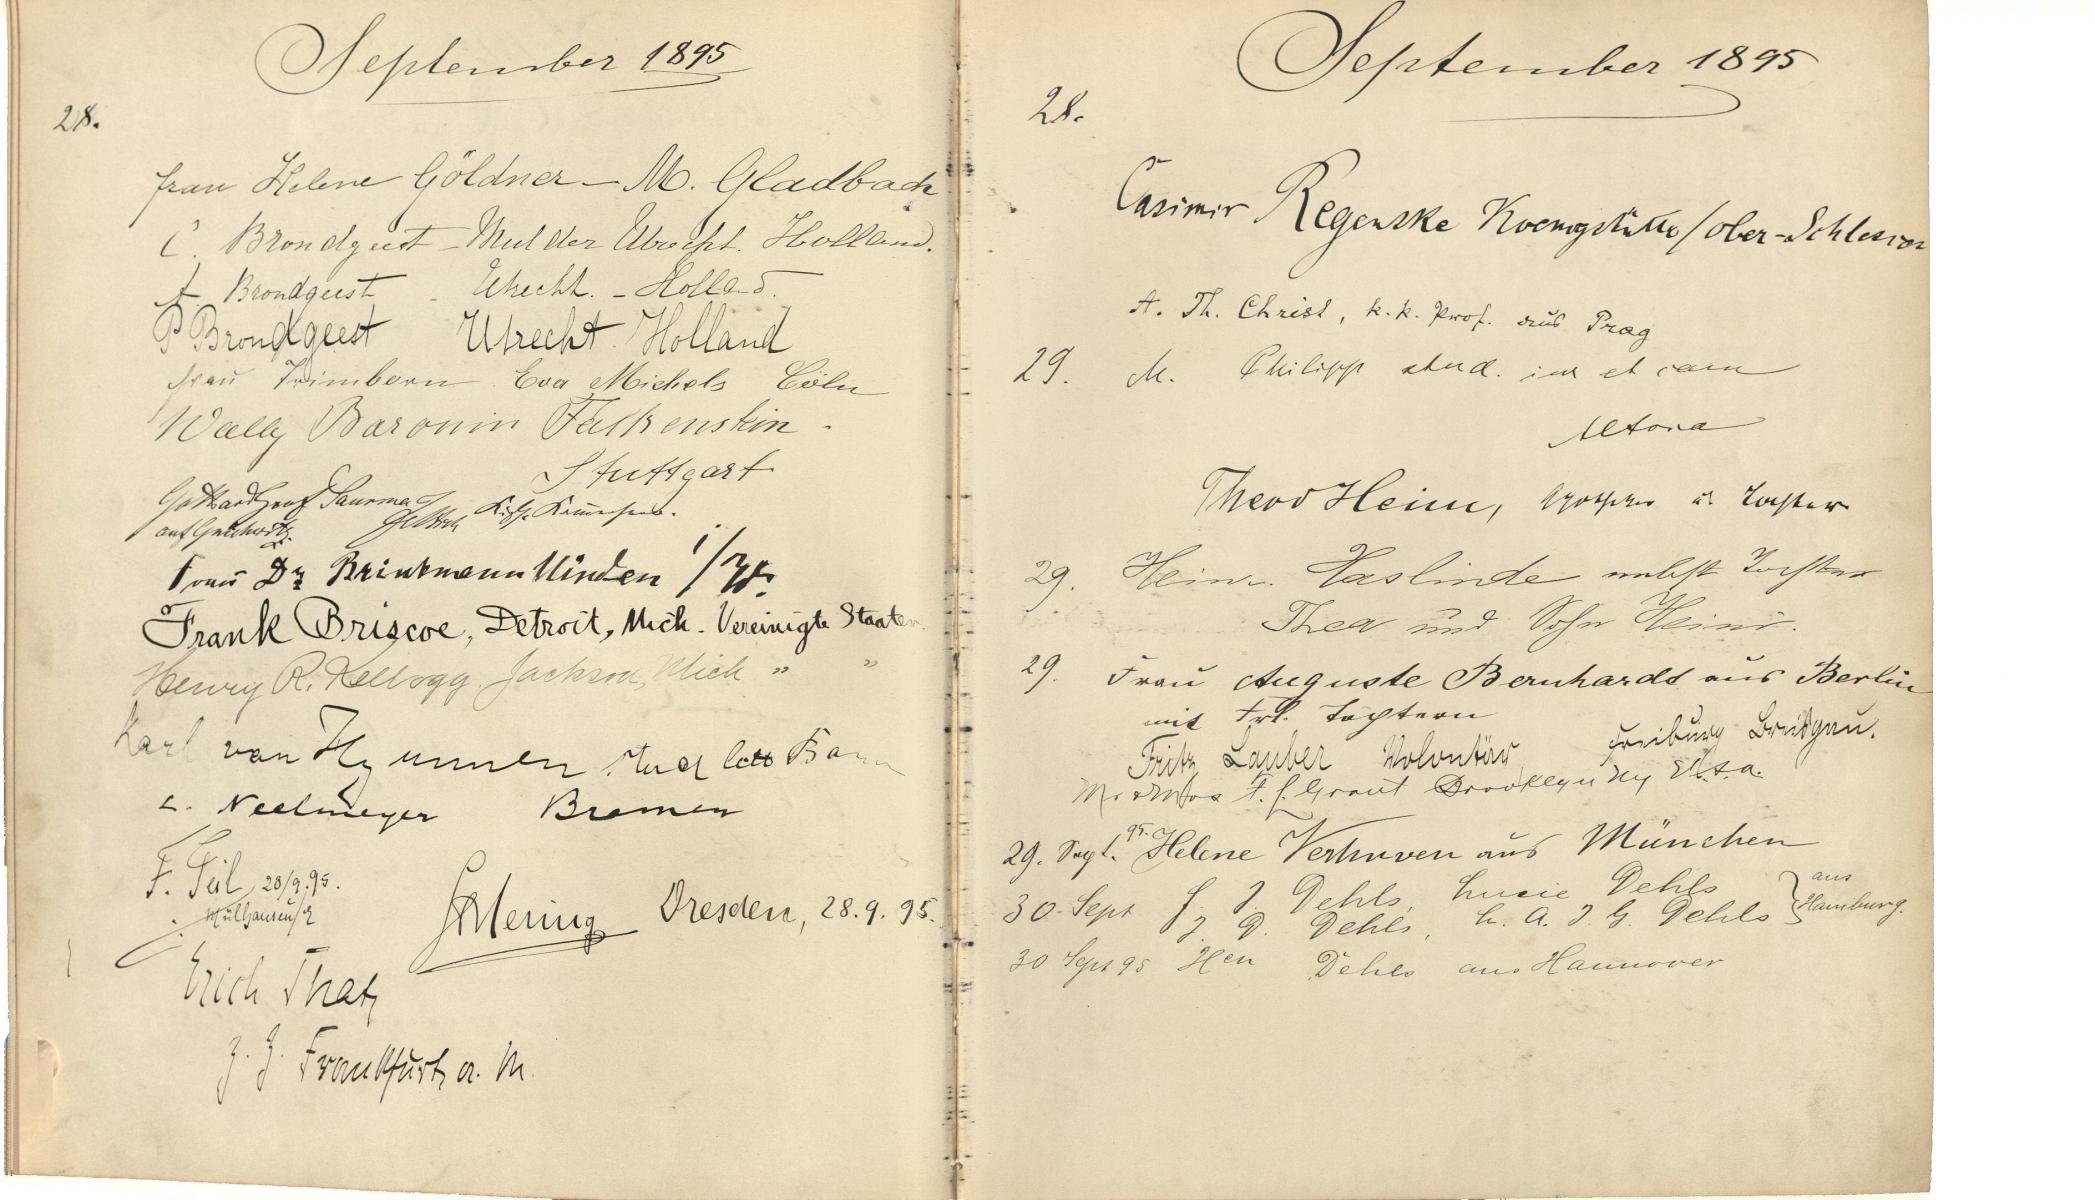 September 1895
28.
Frau Helene Göldner – M. Gladbach
C. Brondgeest – Mulder Utrecht. Holland.
A. Brondgeest – Utrecht. – Holland.
P Brondgeest Utrecht. Holland
Frau Trimborn Eva Michels Cöln
Wally Baronin Falkenstein.
Stuttgart
Gotthard Graf Saurma
auf
Frau Dr Brinkmann Minden i/W.
Frank Briscoe, Detroit, Mich. Vereinigte Staaten
Henry R. Kellogg Jackson, Mich " "
Karl van Hymmen stud Bonn
Neelmeyer Bremen
F. Teil 28/9.95.
Mülhausen/E
Mering Dresden, 28.9.95.
Erich
z. Z. Frankfurt a. M.
September 1895
28.
Casimir Regenske Koenigshütte/Ober-Schlesien
A. Th. Christ, k.k. Prof. aus Prag
29. M. Philipp stud. iur et cam
Altona
Theod Heim, u. Tochter
29. Heinr. Haslinde nebst Tochter
Thea und Sohn Heinr.
29. Frau Auguste Bernhardt aus Berlin
mit Frl. Töchtern
Fritz Lauber Volontär Freiburg Breisgau.
Mr & Mrs F. L. Grant Brooklyn Ny U.S.a.
29. Sept. 95. Helene Verhuven aus München
30. Sept J. J. Dehls, Lucie Dehls
J. D. Dehls, H. A. J. G. Dehls } aus Hamburg.
30 Sept 95 Hen Dehls aus Hannover